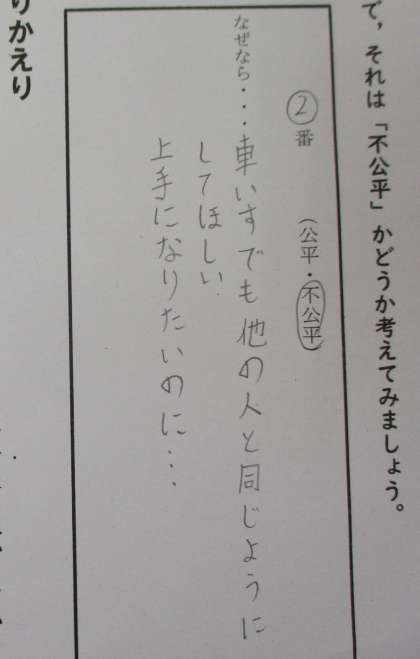 で，それは「不公平」かどうか考えてみましょう。
②番　（公平・不公平）
なぜなら・・・車いすでも他の人と同じように
してほしい
上手になりたいのに…
りかえり